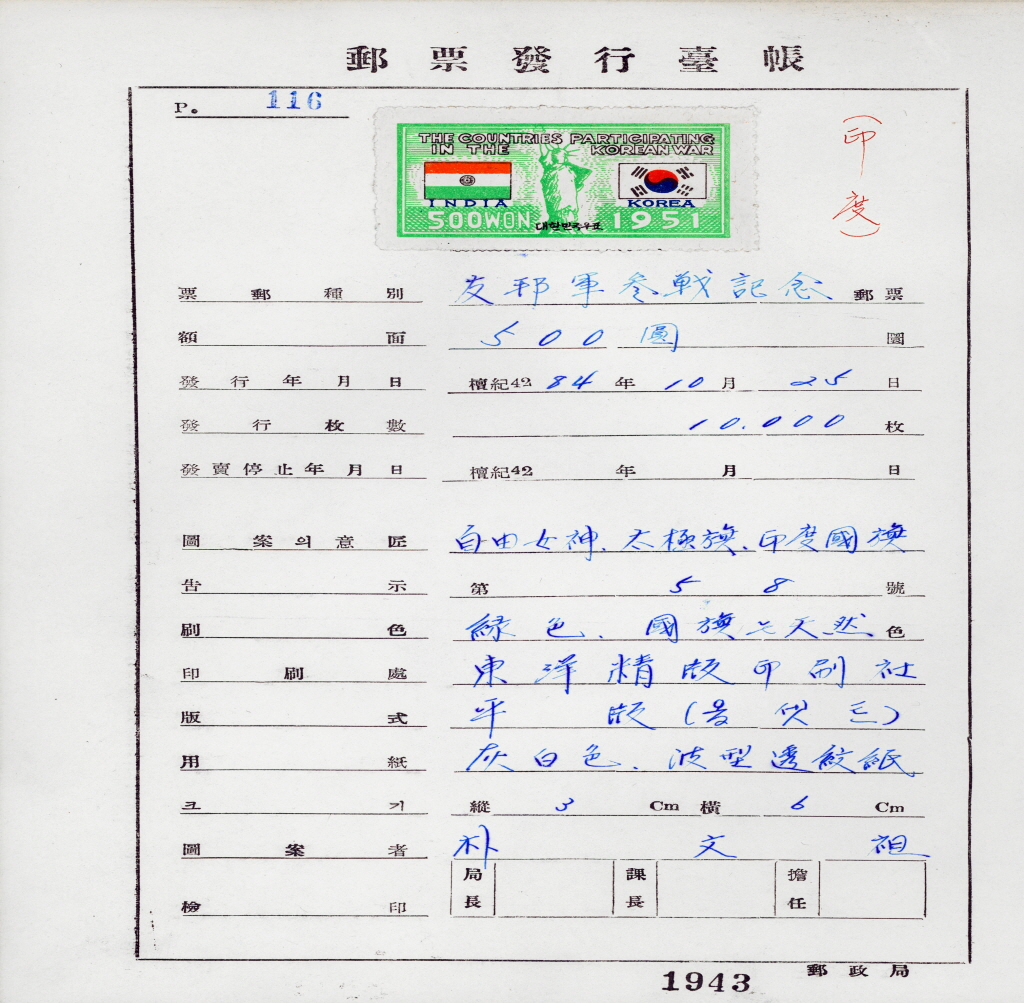 郵票發行臺帳
P. 116
THE COUNTRIES PARTICIPATING
IN THE KOREAN WAR
INDIA KOREA
500WON 대한민국우표 1951
(印度)
票郵種別 友邦軍参戦記念 郵票
額面 500圓 圜
發行年月日 檀紀4284年10月25日
發行枚數 10.000枚
發賣停止年月日 檀紀42 年 月 日
圖案의意匠 自由女神、太極旗、印度國旗
告示 第58號
刷色 綠色、國旗 天然色
印刷處 東洋精版印刷社
版式 平版
用紙 灰白色、波型透紋紙
크기 縱 3 Cm 橫 6 Cm
圖案者 朴文祖
檢印 局長 課長 擔任
1943 郵政局